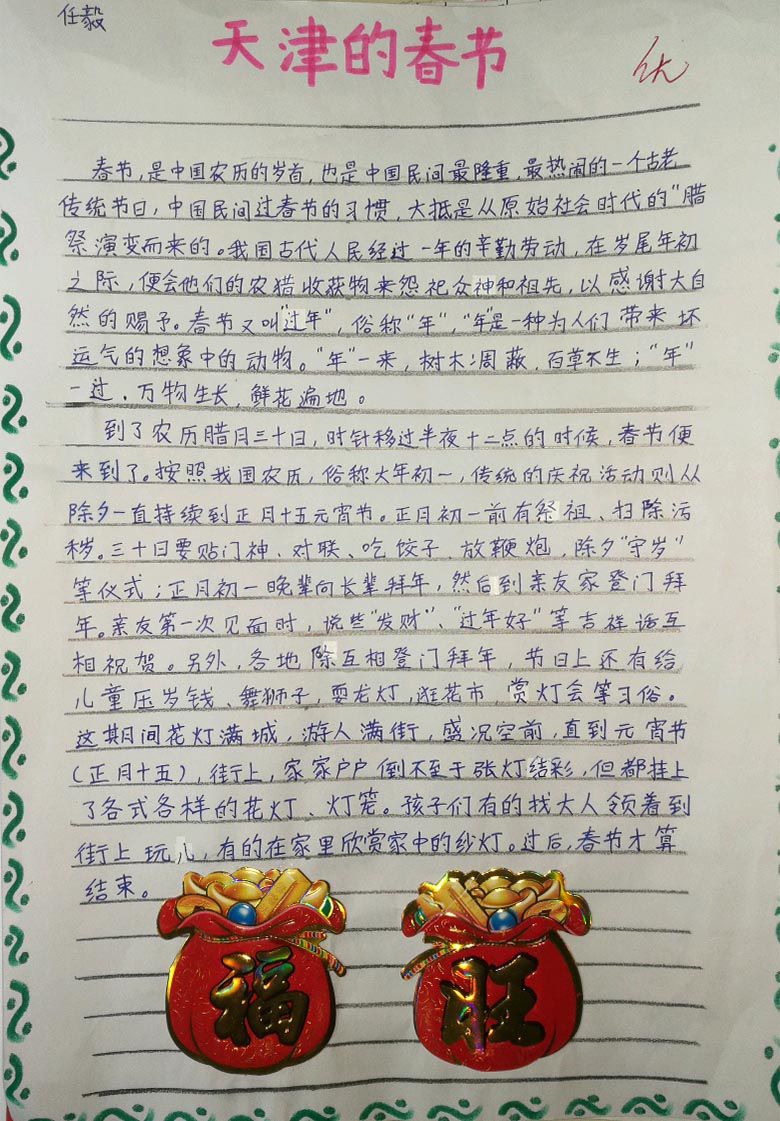 任毅
天津的春节
优
春节,是中国农历的岁首,也是中国民间最隆重,最热闹的一个古老
传统节日,中国民间过春节的习惯,大抵是从原始社会时代的"腊
祭演变而来的。我国古代人民经过一年的辛勤劳动,在岁尾年初
之际,便会他们的农猎收获物来怨祀众神和祖先,以感谢大自
然的赐予。春节又叫"过年",俗称"年","年"是一种为人们带来坏
运气的想象中的动物。"年"一来,树木凋蔽,百草不生;"年"
一过,万物生长,鲜花遍地。
到了农历腊月三十日,时针移过半夜十二点的时候,春节便
来到了。按照我国农历,俗称大年初一,传统的庆祝活动则从
除夕一直持续到正月十五元宵节。正月初一前有祭祖、扫除污
秽。三十日要贴门神、对联、吃饺子、放鞭炮,除夕"守岁"
等仪式;正月初一晚辈向长辈拜年,然后到亲友家登门拜
年。亲友第一次见面时,说些"发财"、"过年好"等吉祥话互
相祝贺。另外,各地除互相登门拜年,节日上还有给
儿童压岁钱、舞狮子,耍龙灯,逛花市,赏灯会等习俗。
这其月间花灯满城,游人满街,盛况空前,直到元宵节
(正月十五),街上,家家户户倒不至于张灯结彩,但都挂上
了各式各样的花灯、灯笼。孩子们有的找大人领着到
街上玩儿,有的在家里欣赏家中的纱灯。过后,春节才算
结束。
福 旺